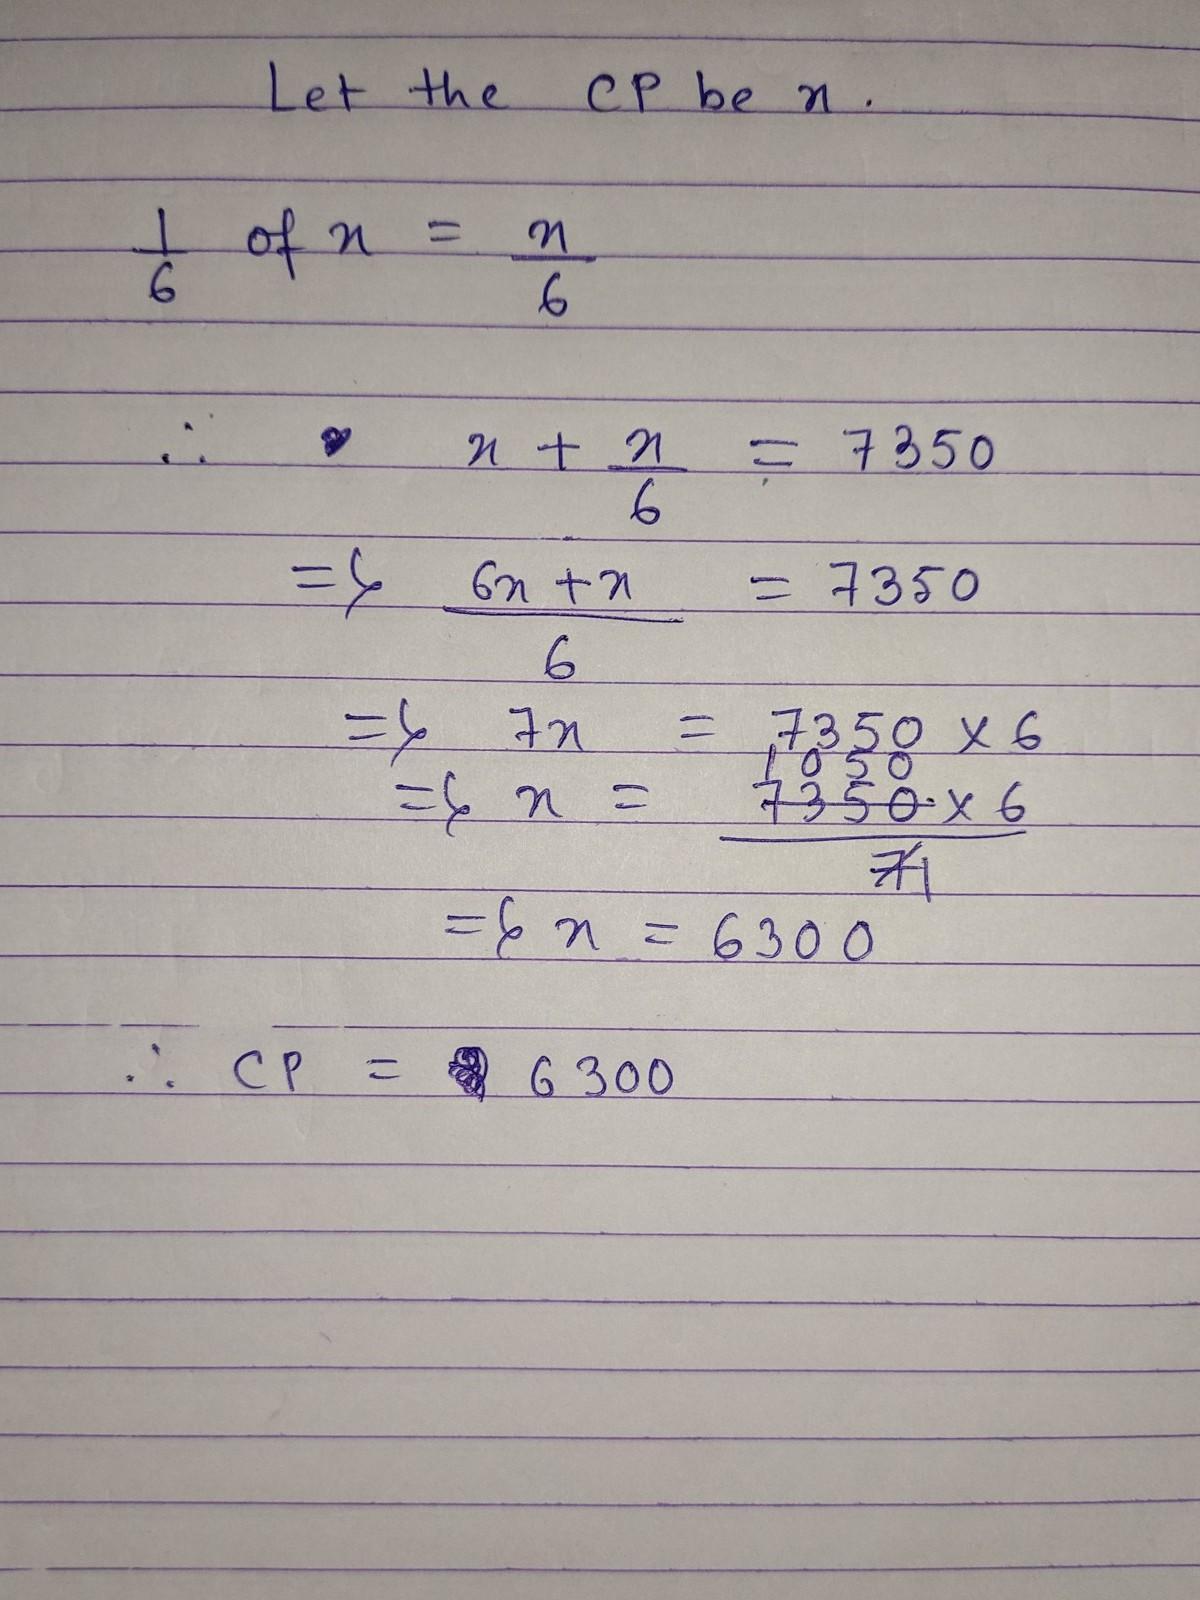 Let the CP be x.
1/6 of x = x/6
∴ x + x/6 = 7350
=> (6x + x)/6 = 7350
=> 7x = 7350 × 6
1050
=> x = 7350 × 6 / 7 1
=> x = 6300
∴ CP = 6300